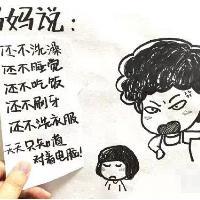 妈妈说:
还不洗澡
还不睡觉
还不吃饭
还不刷牙
还不洗衣服
天天只知道
对着电脑!